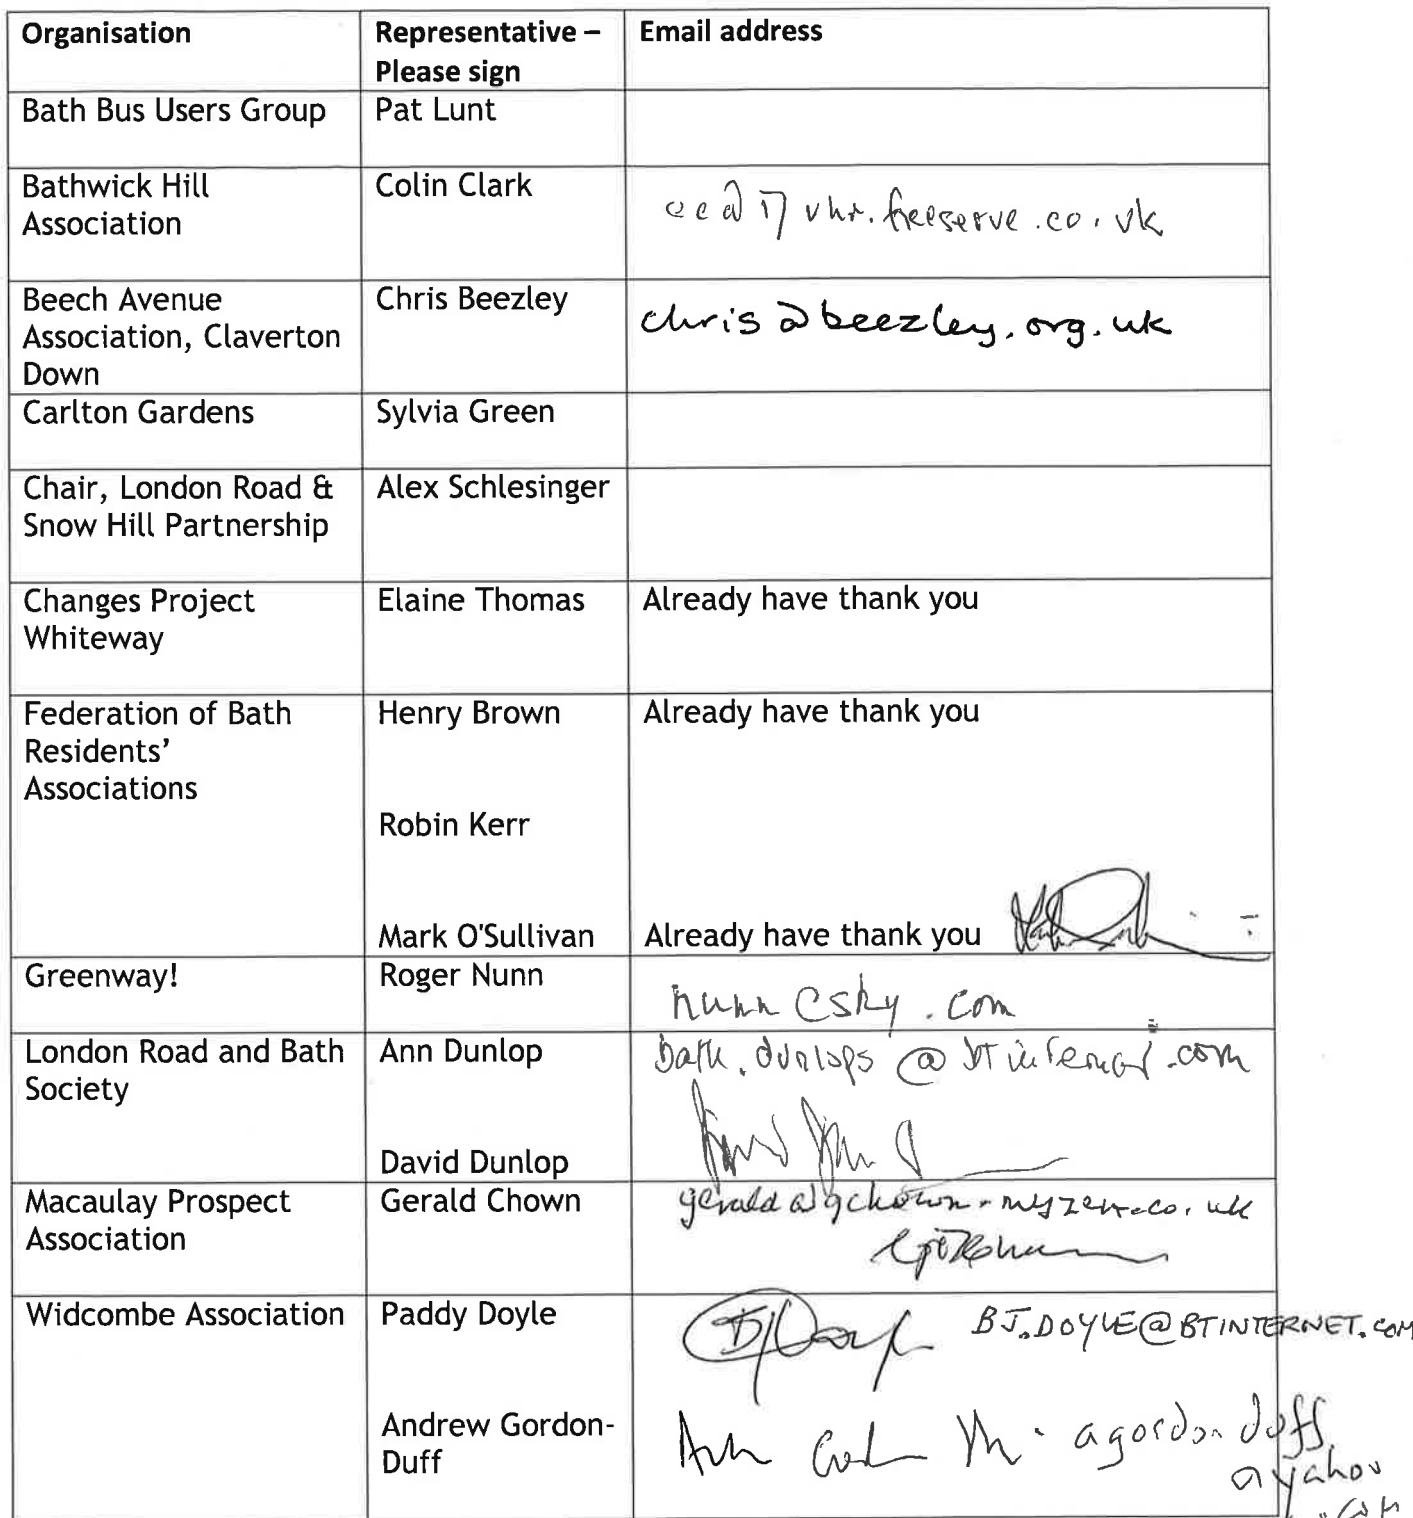 Organisation
Representative –
Please sign
Email address
Bath Bus Users Group
Pat Lunt
Bathwick Hill
Association
Colin Clark
vhr.freeserve.co.uk
Beech Avenue
Association, Claverton
Down
Chris Beezley
chris@beezley.org.uk
Carlton Gardens
Sylvia Green
Chair, London Road &
Snow Hill Partnership
Alex Schlesinger
Changes Project
Whiteway
Elaine Thomas
Already have thank you
Federation of Bath
Residents’
Associations
Henry Brown
Already have thank you
Robin Kerr
Mark O'Sullivan
Already have thank you
Greenway!
Roger Nunn
nunn@sky.com
London Road and Bath
Society
Ann Dunlop
bath.dunlops@btinternet.com
David Dunlop
Macaulay Prospect
Association
Gerald Chown
gerald@gchown.myzen.co.uk
Widcombe Association
Paddy Doyle
BJ.DOYLE@BTINTERNET.COM
Andrew Gordon-
Duff
agordonduff
@yahoo
.com